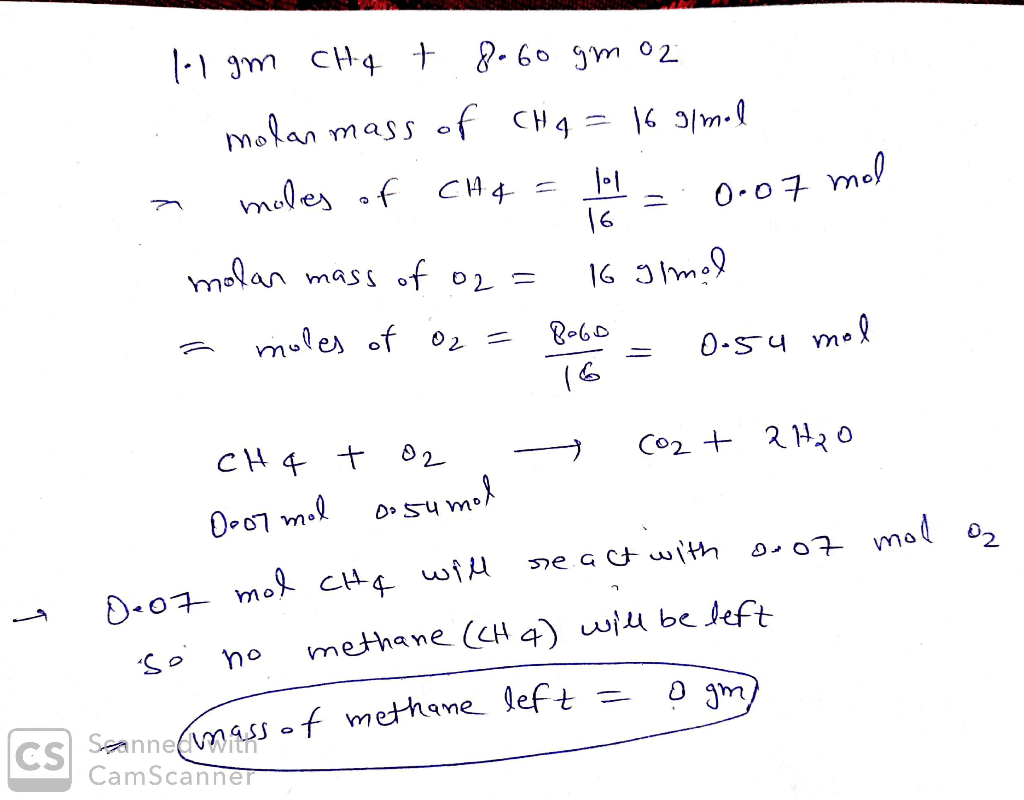 1.1 gm CH4 + 8.60 gm O2
molar mass of CH4 = 16 g/mol
⇒ moles of CH4 = 1.1/16 = 0.07 mol
molar mass of O2 = 16 g/mol
= moles of O2 = 8.60/16 = 0.54 mol
CH4 + O2 → CO2 + 2H2O
0.07 mol 0.54 mol
→ 0.07 mol CH4 will react with 0.07 mol O2
so no methane (CH4) will be left
⇒ mass of methane left = 0 gm
CS Scanned with
CamScanner